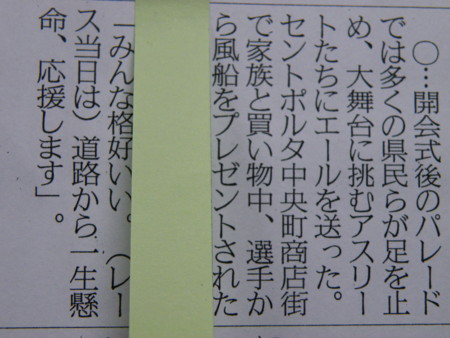 〇…開会式後のパレード
では多くの県民らが足を止
め、大舞台に挑むアスリー
トたちにエールを送った。
セントポルタ中央町商店街
で家族と買い物中、選手か
ら風船をプレゼントされた
「みんな格好いい。（レー
ス当日は）道路から一生懸
命、応援します」。